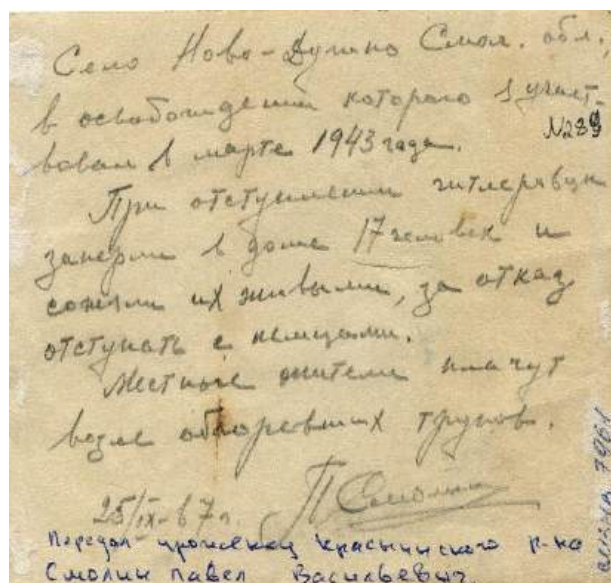 Село Ново-Дугино Смол. обл.,
в освобождении которого я участ-
№289
вовал в марте 1943 года.
При отступлении гитлеровцы
заперли в доме 17 человек и
сожгли их живыми, за отказ
отступать с немцами.
Местные жители плачут
возле обгоревших трупов.
25/IX-67г. П Смолин
Передал уроженец Краснинского р-на
Смолин Павел Васильевич.